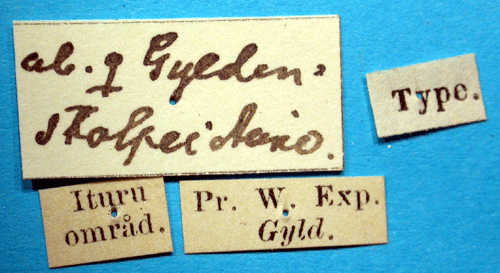 ab. ♀ Gylden-
stolpei Auriv.
Type.
Ituru
områd.
Pr. W. Exp.
Gyld.